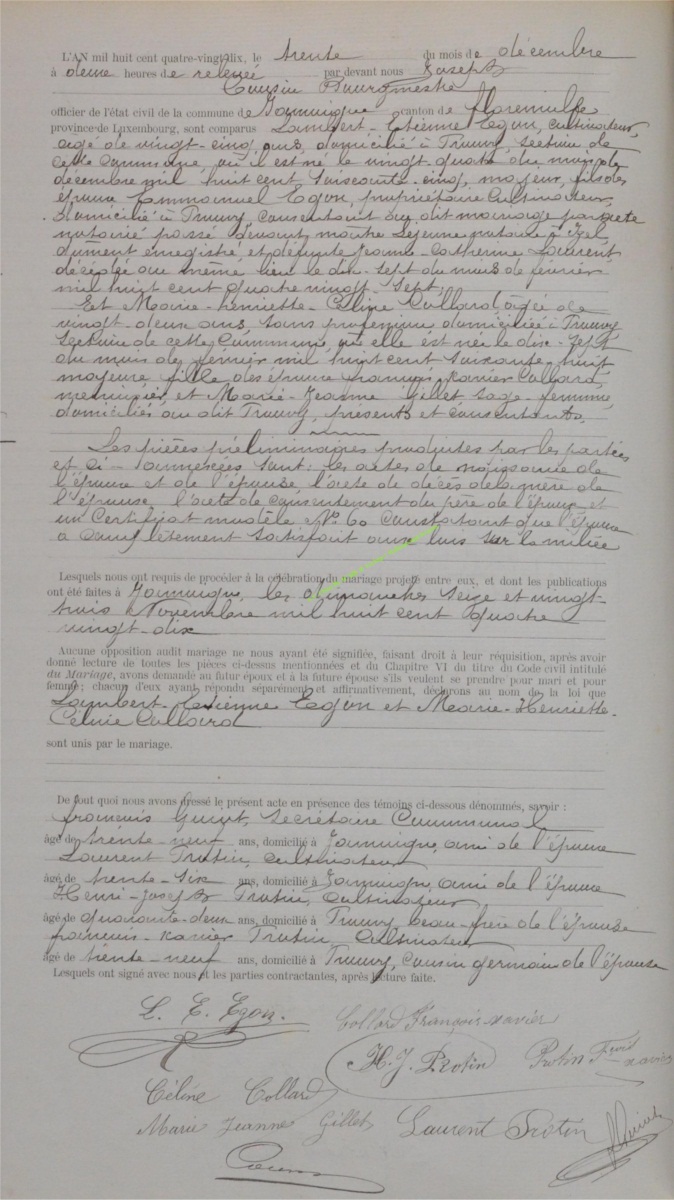 L'AN mil huit cent quatre-vingt-dix, le trente du mois de décembre
à deux heures de relevée par devant nous Joseph
Cousin Bourgmestre
officier de l'état civil de la commune de Jamoigne canton de Florenville
province de Luxembourg, sont comparus Lambert-Etienne Egon, cultivateur,
agé de vingt-cinq ans, domicilié à Prouvy, section de
cette Commune, où il est né le vingt-quatre du mois de
décembre mil huit cent soixante-cinq, majeur, fils des
époux Emmanuel Egon, propriétaire Cultivateur,
domicilié à Prouvy, consentant au dit mariage par acte
notarié passé devant maître Lejeune notaire à Izel
dûment enregistré et défunte Jeanne-Catherine Laurent
décédée au même lieu le dix-sept du mois de février
mil huit cent quatre vingt-sept;
Et Marie-henriette-Céline Collard, agée de
vingt-deux ans, sans profession, domiciliée à Prouvy,
section de cette Commune, où elle est née le dix-sept
du mois de janvier mil huit cent soixante-huit,
majeure fille des époux françois-xavier Collard,
menuisier et Marie-Jeanne Gillet sage-femme,
domiciliés au dit Prouvy, présents et consentants.
Les pièces préliminaires produites par les parties
et ci-annexées sont: les actes de naissance de
l'époux et de l'épouse l'acte de décès de la mère de
l'époux l'acte de consentement du père de l'époux et
un Certificat modèle N° 60 constatant que l'époux
a complètement satisfait aux lois sur la milice
Lesquels nous ont requis de procéder à la célébration du mariage projeté entre eux, et dont les publications
ont été faites à Jamoigne, les dimanches seize et vingt-
trois Novembre mil huit cent quatre
vingt-dix
Aucune opposition audit mariage ne nous ayant été signifiée, faisant droit à leur réquisition, après avoir
donné lecture de toutes les pièces ci-dessus mentionnées et du Chapitre VI du titre du Code civil intitulé
du Mariage, avons demandé au futur époux et à la future épouse s'ils veulent se prendre pour mari et pour
femme; chacun d'eux ayant répondu séparément et affirmativement, déclarons au nom de la loi que
Lambert-Etienne Egon et Marie-Henriette-
Céline Collard
sont unis par le mariage.
De tout quoi nous avons dressé le présent acte en présence des témoins ci-dessous dénommés, savoir :
françois Guiot, Secrétaire Communal
âgé de trente-neuf ans, domicilié à Jamoigne, ami de l'époux
Laurent Protin, Cultivateur
âgé de trente-six ans, domicilié à Jamoigne, ami de l'époux
Henri-Joseph Protin, Cultivateur
âgé de quarante-deux ans, domicilié à Prouvy beau-frère de l'épouse
françois-xavier Protin, Cultivateur
âgé de trente-neuf ans, domicilié à Prouvy, Cousin germain de l'épouse
Lesquels ont signé avec nous et les parties contractantes, après lecture faite.
L. E. Egon. Collard François xavier
H. J. Protin Protin Fçois xavier
Céline Collard
Marie Jeanne Gillet Laurent Protin Guiot
Cousin